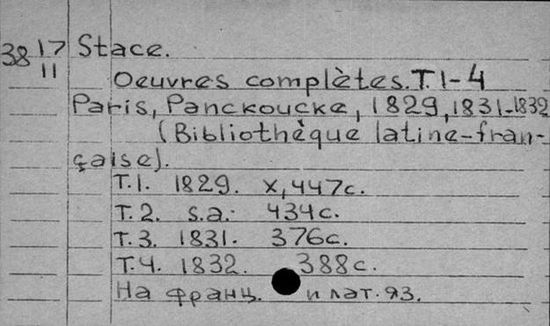 38 17/11 Stace.
Oeuvres complètes. T. 1-4
Paris, Panckoucke, 1829, 1831-1832
(Bibliothèque latine-fran-
çaise).
T. 1. 1829. X, 447с.
T. 2. s.a. 434с.
T. 3. 1831. 376с.
T. 4. 1832. 388с.
На франц. и лат. яз.